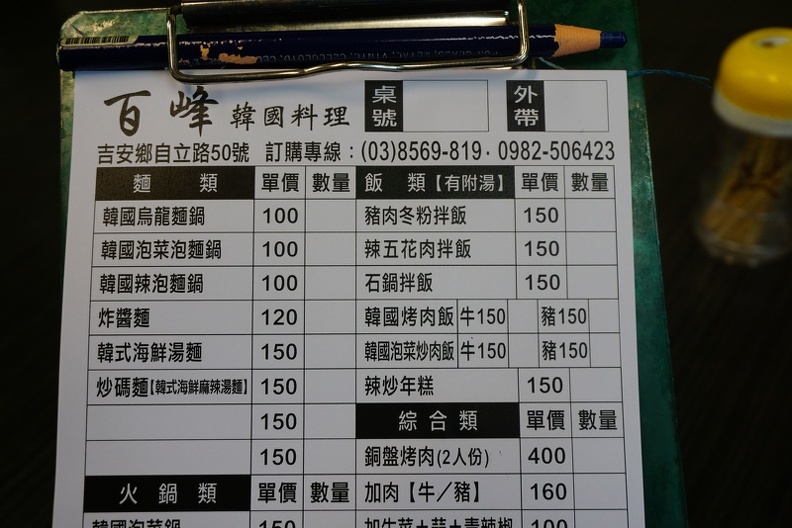 百峰 韓國料理 桌號 外帶
吉安鄉自立路50號 訂購專線：(03)8569-819·0982-506423
麵 類 單價 數量 飯 類【有附湯】 單價 數量
韓國烏龍麵鍋 100 豬肉冬粉拌飯 150
韓國泡菜泡麵鍋 100 辣五花肉拌飯 150
韓國辣泡麵鍋 100 石鍋拌飯 150
炸醬麵 120 韓國烤肉飯 牛150 豬150
韓式海鮮湯麵 150 韓國泡菜炒肉飯 牛150 豬150
炒碼麵【韓式海鮮麻辣湯麵】 150 辣炒年糕 150
150 綜合類 單價 數量
150 銅盤烤肉(2人份) 400
火鍋類 單價 數量 加肉【牛／豬】 160
韓國泡菜鍋 150 加生菜+蒜+青辣椒 100